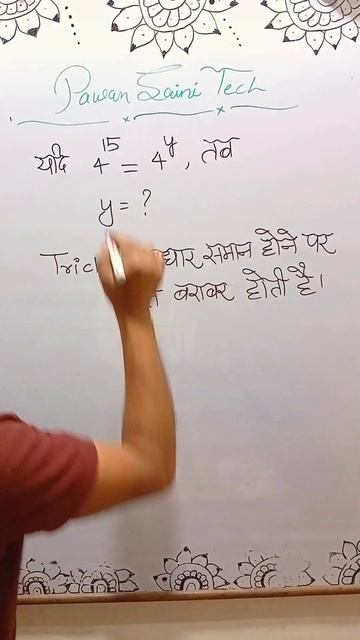 Pawan Saini Tech
यदि 4^15 = 4^y, तब
y = ?
समान होने पर
बराबर होती है।